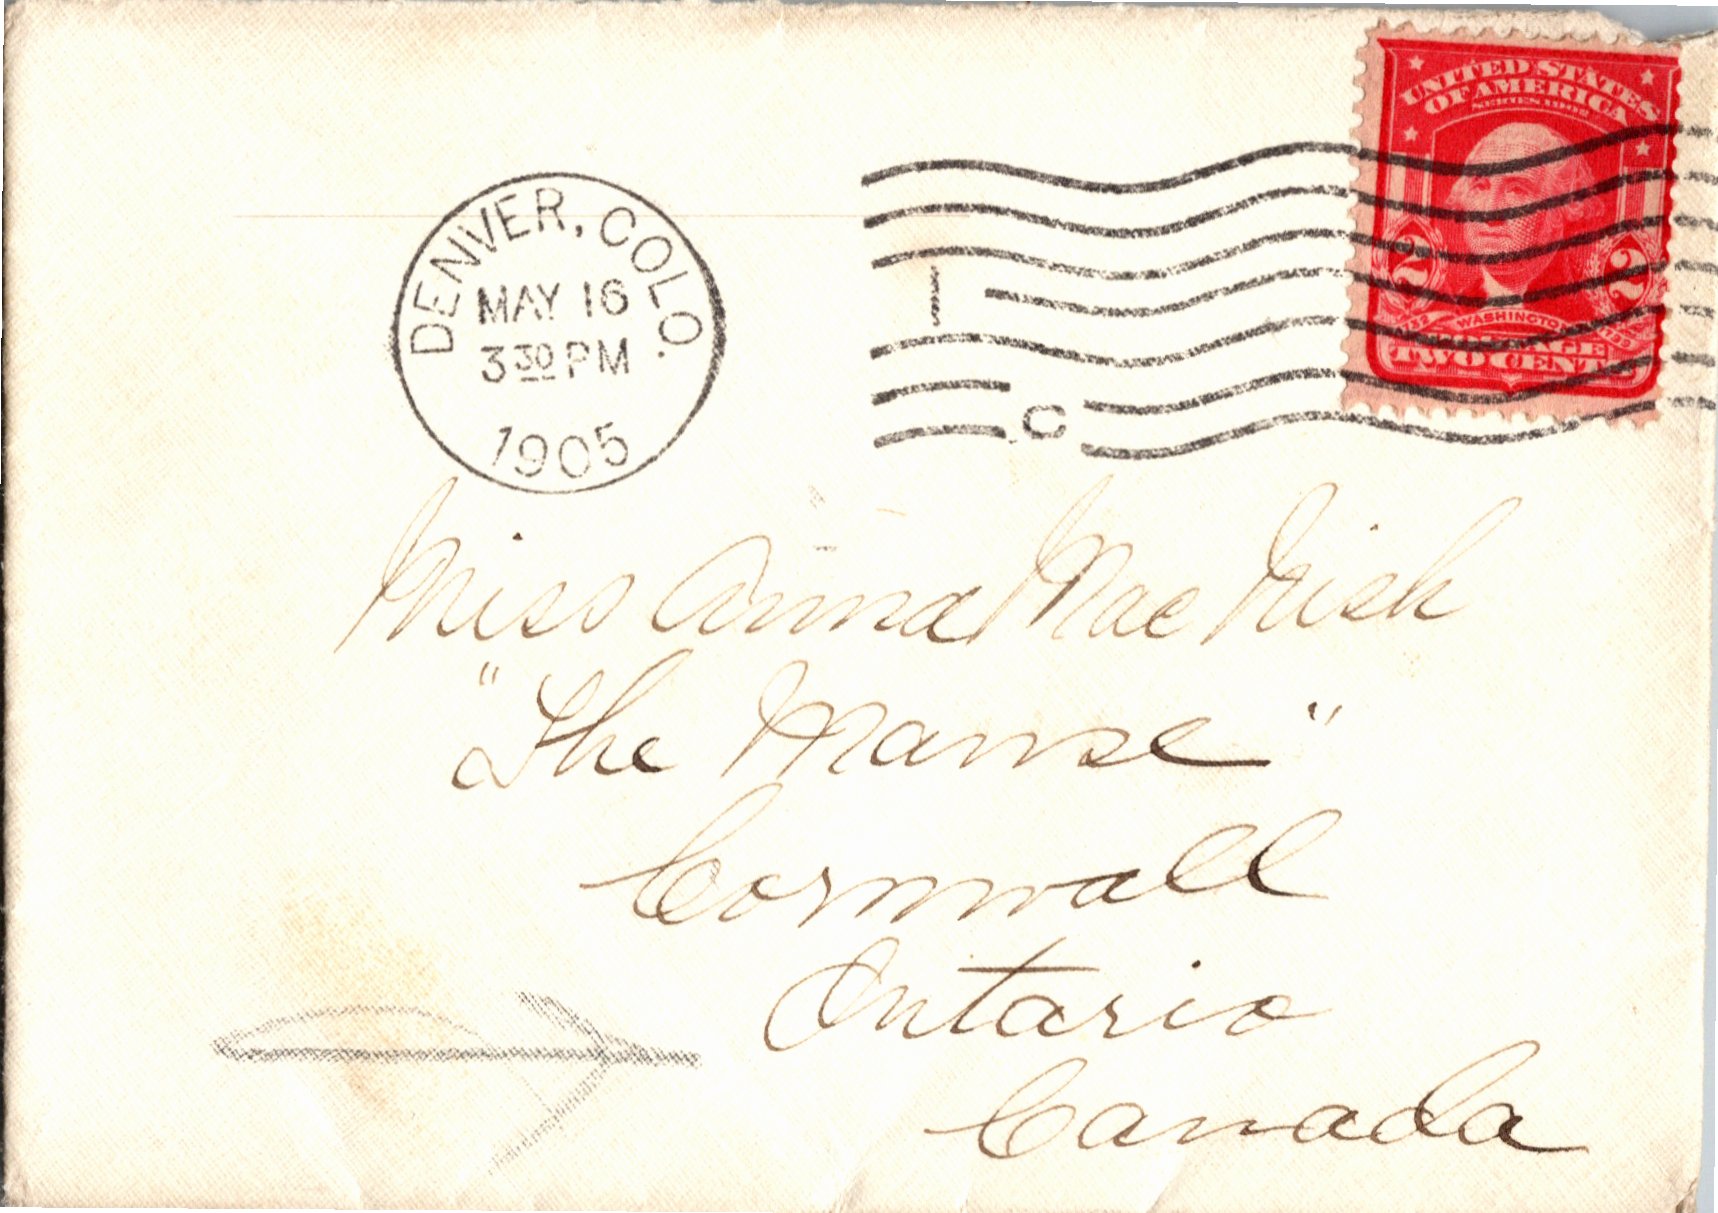 UNITED STATES
OF AMERICA
SERIES 1902
2 2
1732 WASHINGTON 1799
POSTAGE
TWO CENTS
DENVER, COLO.
MAY 16
3 30 PM
1905
1
C
Miss Anna Mac Nish
"The Manse"
Cornwall
Ontario
Canada